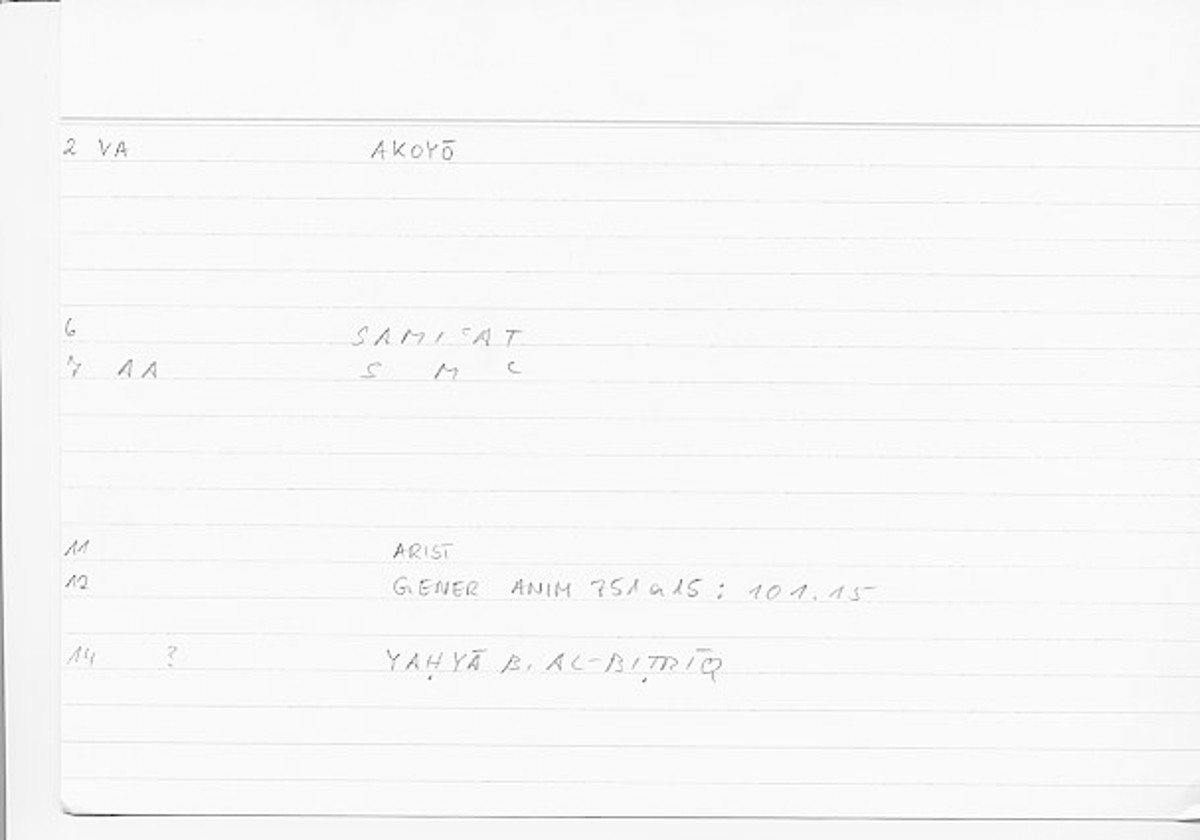 2 VA AKOYŌ
6 SAMIʿAT
7 AA S M ʿ
11 ARIST
12 GENER ANIM 751a15 : 101.15
14 ? YAḤYĀ B. AL-BIṬRĪQ